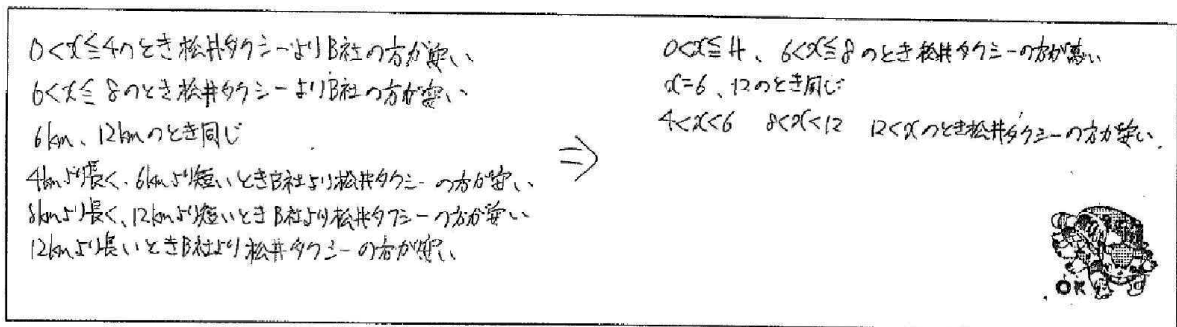 0<x≦4のとき松井タクシーよりB社の方が安い
6<x≦8のとき松井タクシーよりB社の方が安い
6km、12kmのとき同じ
4kmより長く、6kmより短いときB社より松井タクシーの方が安い
8kmより長く、12kmより短いときB社より松井タクシーの方が安い
12kmより長いときB社より松井タクシーの方が安い
⇒
0<x≦4、6<x≦8のとき松井タクシーの方が高い
x=6、12のとき同じ
4<x<6 8<x<12 12<xのとき松井タクシーの方が安い.
OK